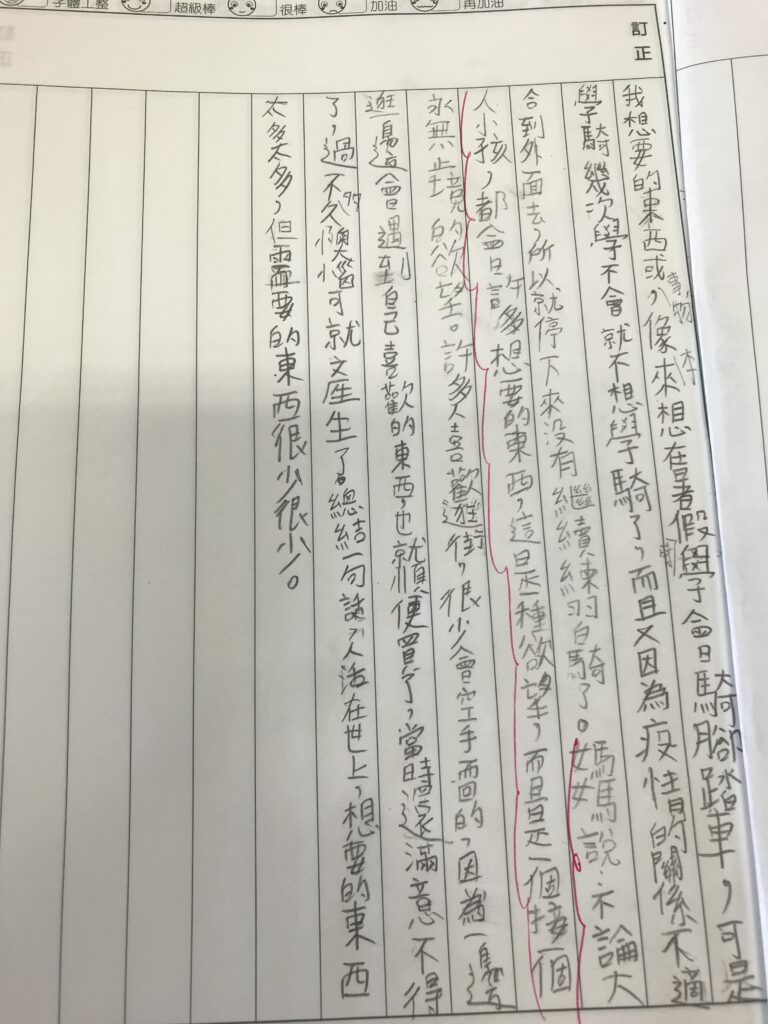 字體工整 超級棒 很棒 加油 再加油
訂正
我想要的東西或事物,像本來想在暑假時學會騎腳踏車,可是
學騎幾次學不會就不想學騎了,而且又因為疫情的關係不適
合到外面去,所以就停下來沒有繼續練習騎了。媽媽說:不論大
人小孩,都會許多想要的東西,這是一種欲望,而且是一個接一個
永無止境的欲望。許多人喜歡逛街,很少會空手而回的,因為一邊逛
逛邊會遇到自己喜歡的東西,也就順便買了,當時還滿意不得
了,過不久的懊惱可就產生了。總結一句話,人活在世上,想要的東西
太多太多,但需要的東西很少很少。